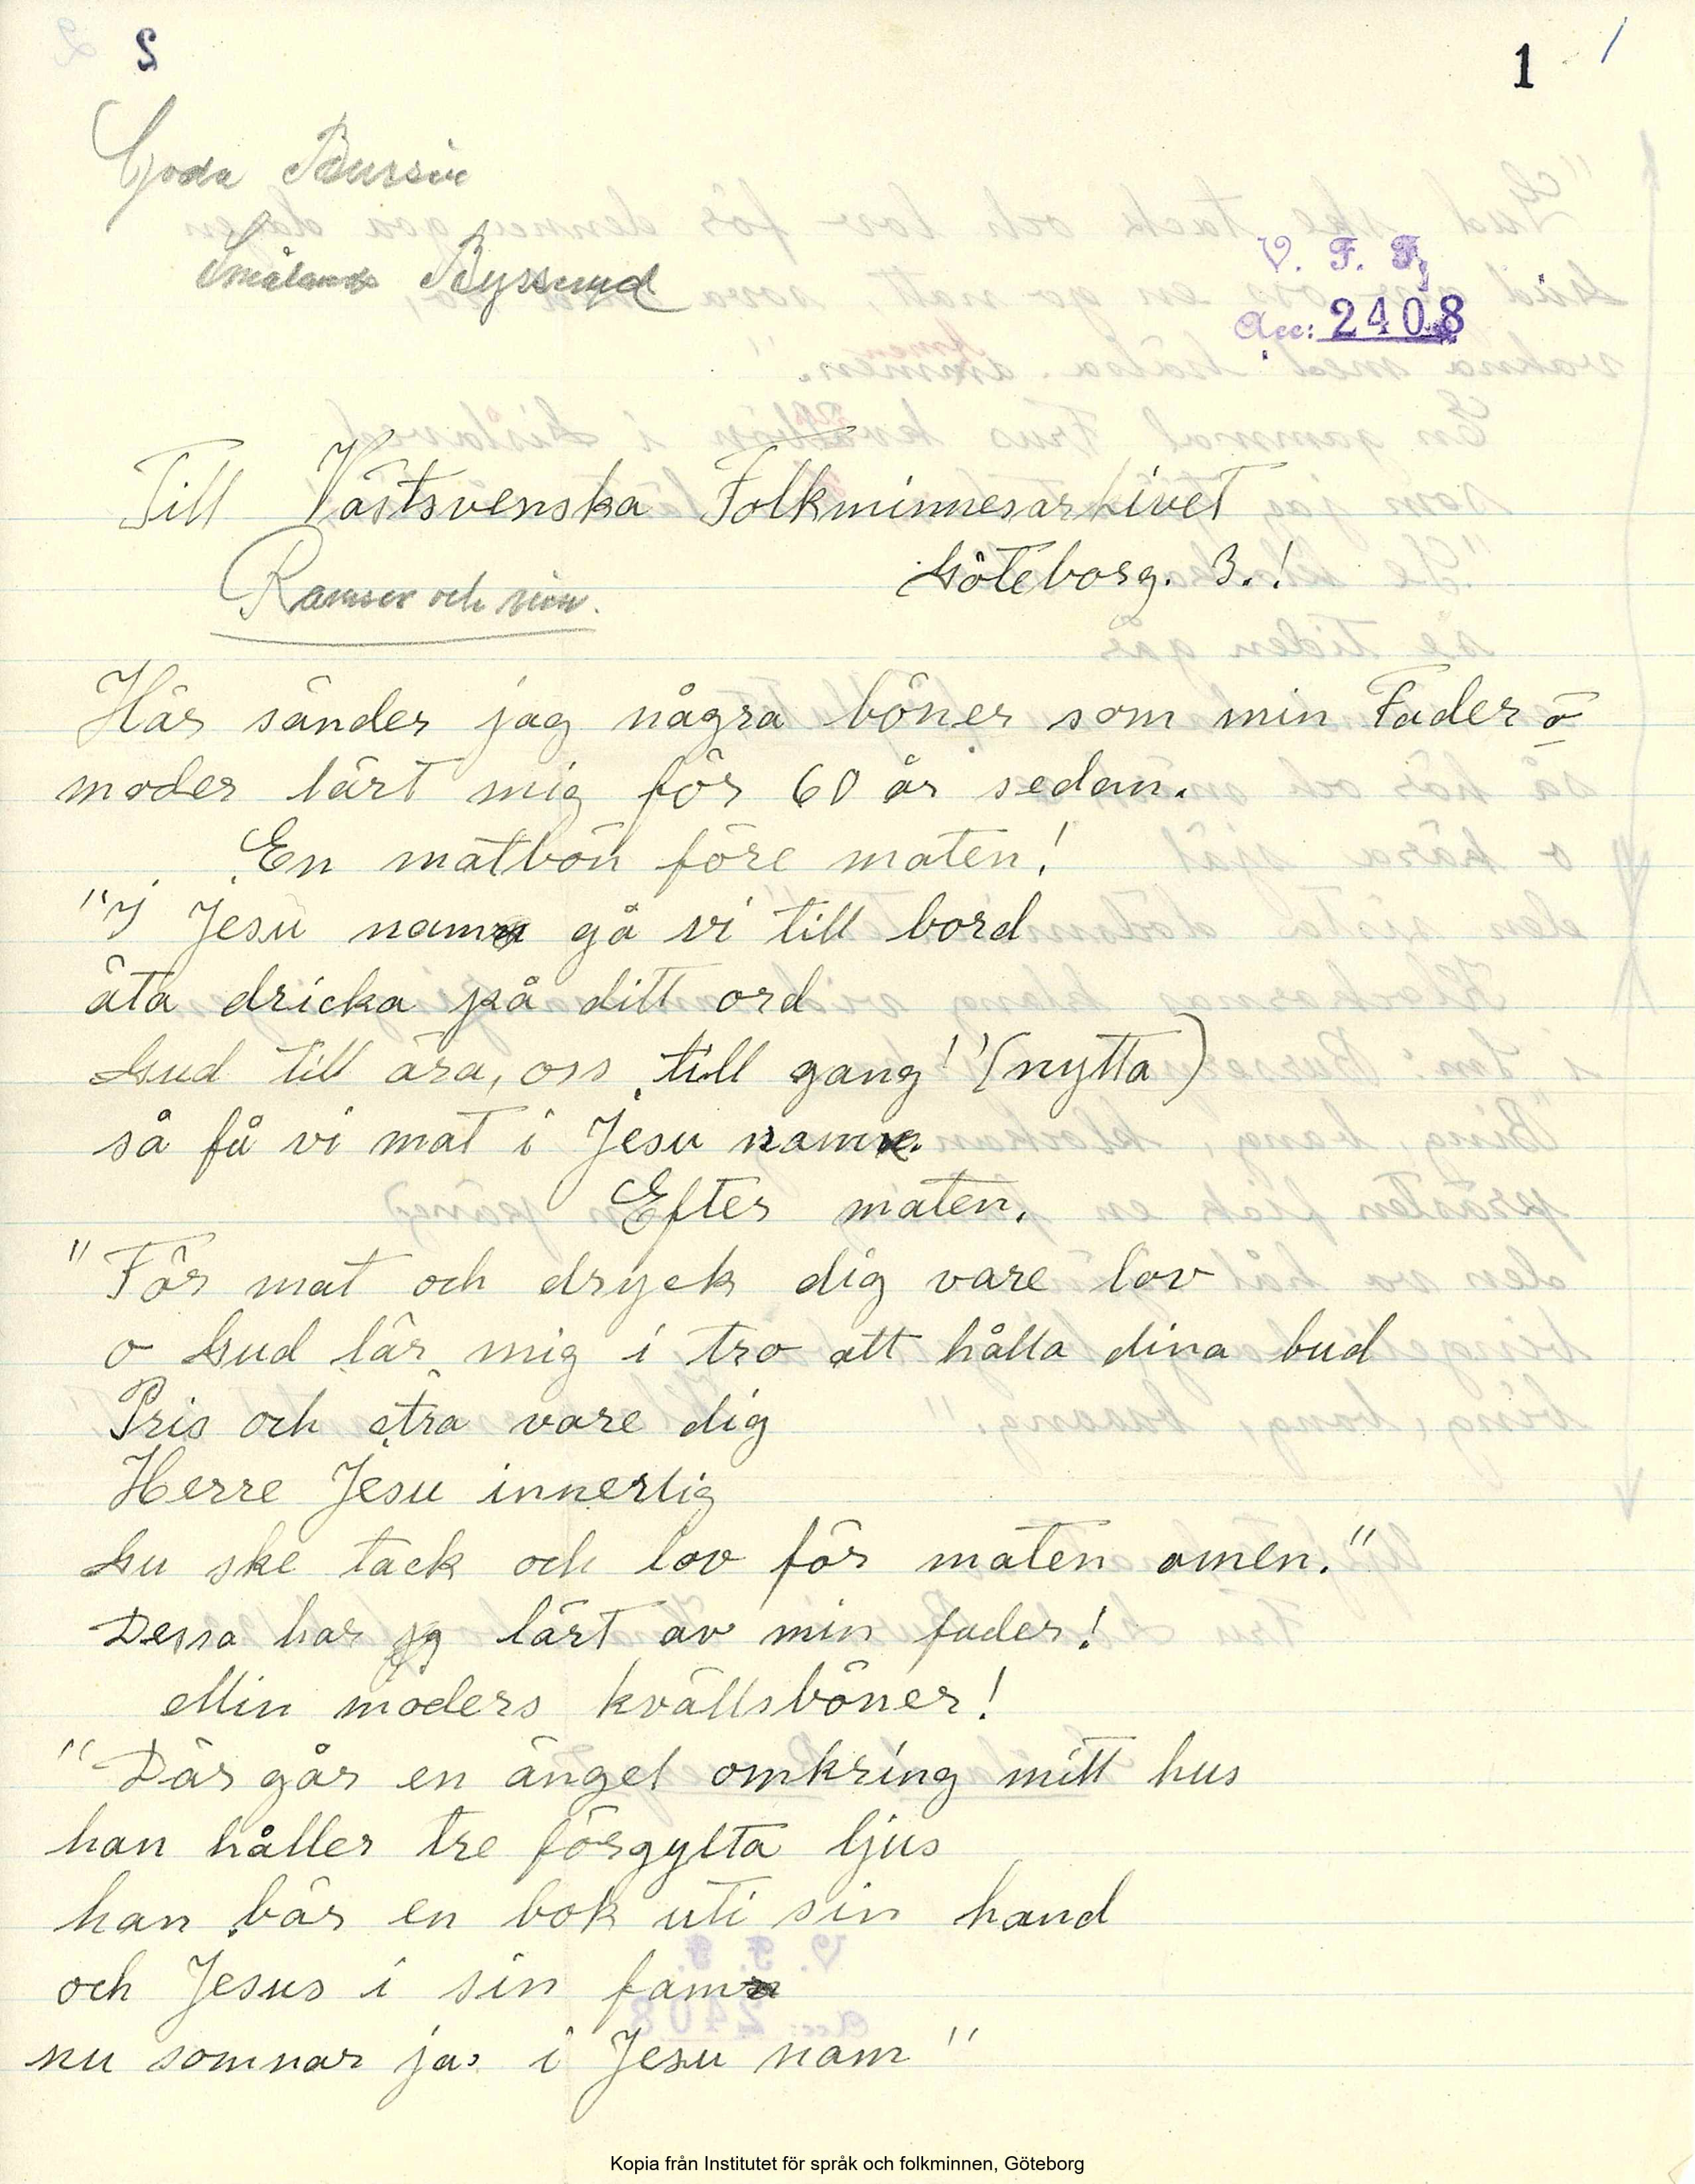 S
1
V. F. F.
Acc: 2408
Småland
Till Västsvenska Folkminnesarkivet
Göteborg. 3.!
Ramsor och rim.
Här sänder jag några böner som min Fader o
moder lärt mig för 60 år sedan.
En matbön före maten!
"I Jesu namn gå vi till bord
äta dricka på ditt ord
Gud till ära, oss till gang" (nytta)
så få vi mat i Jesu namn.
Efter maten.
"För mat och dryck dig vare lov
o Gud lär mig i tro att hålla dina bud
Pris och ära vare dig
Herre Jesu innerlig
Gu ske tack och lov för maten amen."
Dessa har jg lärt av min fader!
Min moders kvällsböner!
"Där går en ängel omkring mitt hus
han håller tre förgylta ljus
han bär en bok uti sin hand
och Jesus i sin famn
nu somnar ja i Jesu nam"
Kopia från Institutet för språk och folkminnen, Göteborg